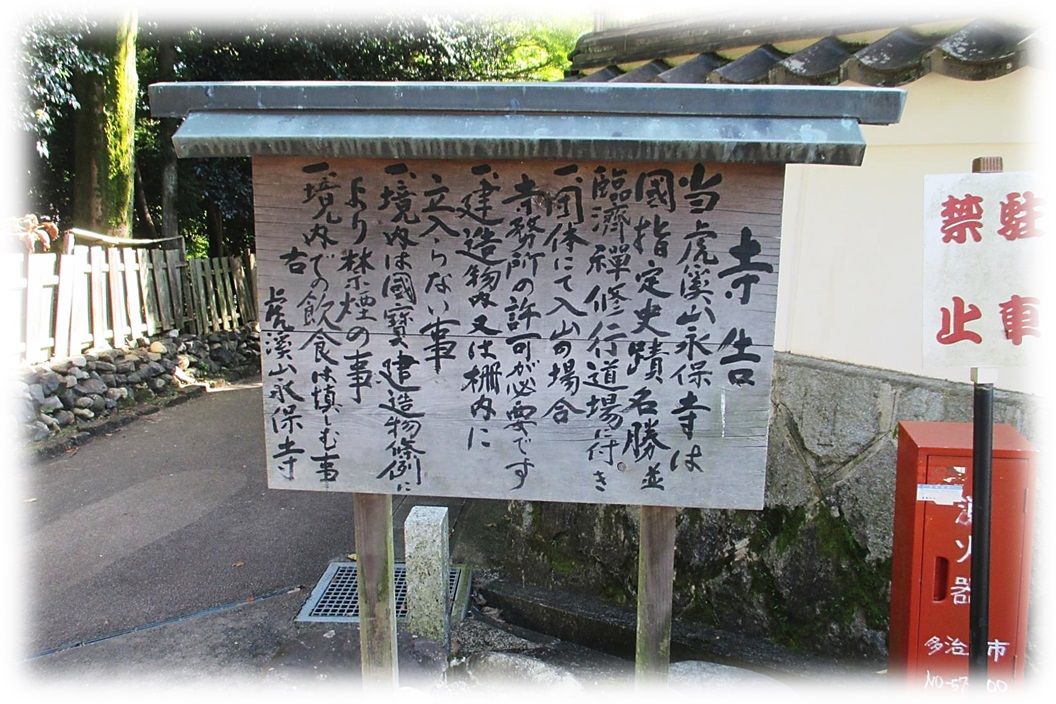 寺告
当虎溪山永保寺は
國指定史蹟名勝並
臨濟禅修行道場に付き
一、団体にて入山の場合
寺務所の許可が必要です
一、建造物内又は柵内に
立入らない事
一、境内は國寳建造物條例に
より禁煙の事
一、境内での飲食は慎しむ事
右
虎溪山永保寺
駐車
禁止
消火器
多治 市